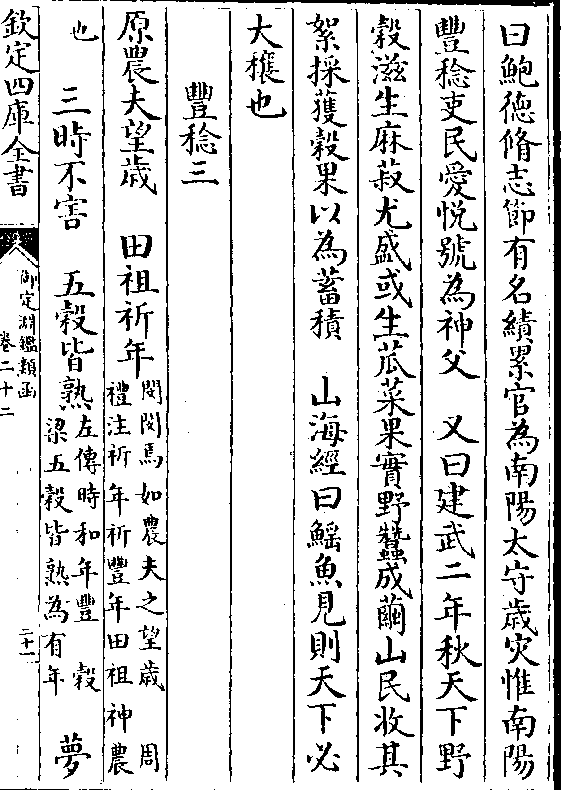 曰鮑德脩志節有名績累官為南陽太守歲灾惟南陽
豐稔吏民愛悅號為神父　又曰建武二年秋天下野
穀滋生麻菽尤盛或生苽菜果實野蠶成繭山民收其
絮採獲穀果以為蓄積　山海經曰鰩魚見則天下必
大穰也
豐稔三
原農夫望歲　田祖祈年閔閔焉如農夫之望歲　周
禮注祈年祈豐年田祖神農
也　三時不害　五穀皆熟左傳時和年豐　穀
梁五穀皆熟為有年　夢
欽定四庫全書
御定淵鑑類函
卷二十二
二十一